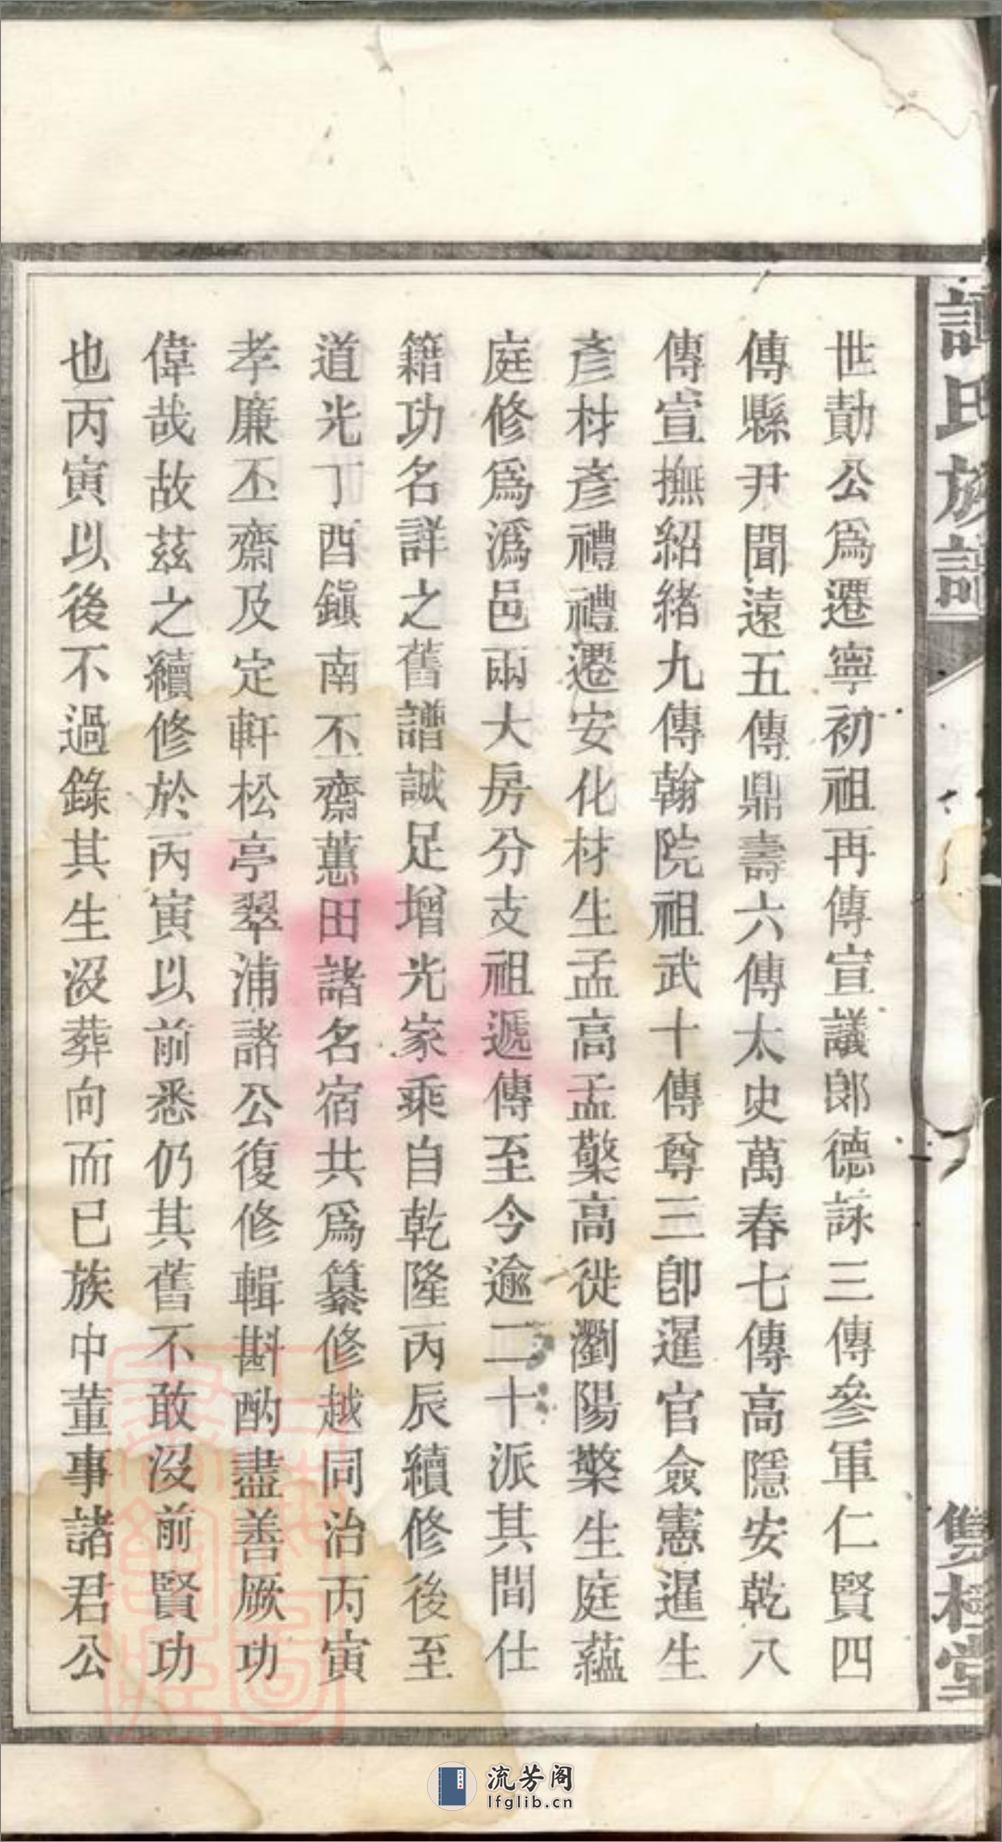 世勣公爲遷寧初祖再傳宣議郎德詠三傳參軍仁賢四
傳縣尹聞遠五傳鼎壽六傳太史萬春七傳高隱安乾八
傳宣撫紹緒九傳翰院祖武十傳尊三卽暹官僉憲暹生
彥材彥禮禮遷安化材生孟高孟檠高徙瀏陽檠生庭蘊
庭修爲潙邑兩大房分支祖遞傳至今逾二十派其間仕
籍功名詳之舊譜誠足增光家乘自乾隆丙辰續修後至
道光丁酉鎭南丕齋蕙田諸名宿共爲纂修越同治丙寅
孝廉丕齋及定軒松亭翠浦諸公復修輯斟酌盡善厥功
偉哉故茲之續修於丙寅以前悉仍其舊不敢沒前賢功
也丙寅以後不過錄其生沒葬向而已族中董事諸君公
氏族譜
雙桂堂
流芳阁
lfglib.cn